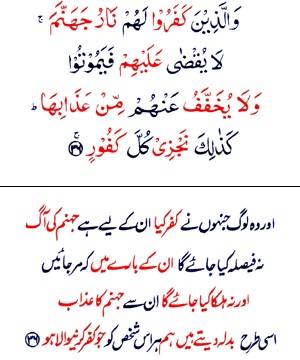 وَالَّذِیْنَ كَفَرُوْا لَهُمْ نَارُ جَهَنَّمَ ۚ
لَا یُقْضٰی عَلَیْهِمْ فَیَمُوْتُوْا
وَلَا یُخَفَّفُ عَنْهُمْ مِّنْ عَذَابِهَا ؕ
كَذٰلِكَ نَجْزِیْ كُلَّ كَفُوْرٍ ۚ ﴿۳۶﴾
اور وہ لوگ جنہوں نے کفر کیا ان کے لیے ہے جہنم کی آگ
نہ فیصلہ کیا جائے گا ان کے بارے میں کہ مر جائیں
اور نہ ہلکا کیا جائے گا ان سے جہنم کا عذاب
اسی طرح بدلہ دیتے ہیں ہم ہر اس شخص کو جو کفر کرنیوالا ہو ﴿۳۶﴾